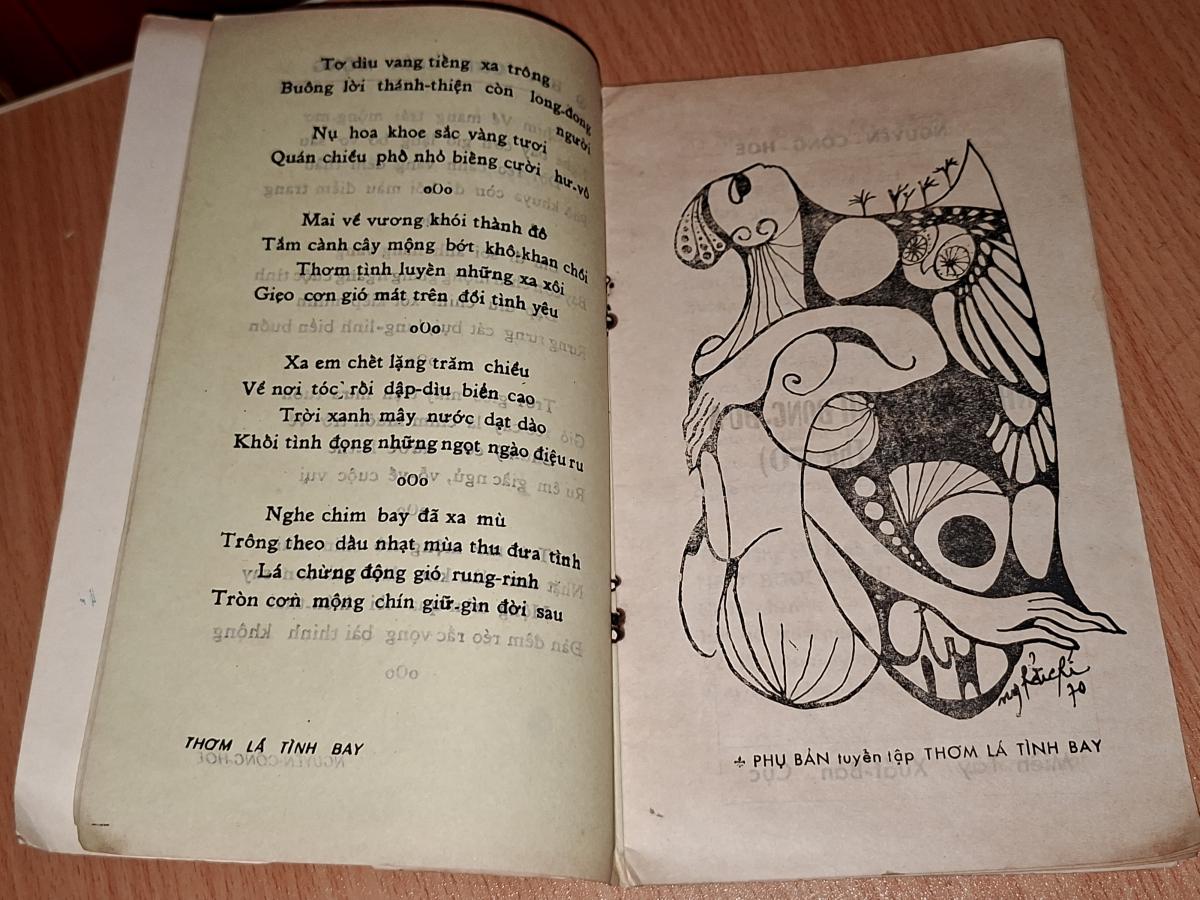 Tơ dìu vang tiếng xa trông
Buông lời thánh-thiện còn long-đong người
Nụ hoa khoe sắc vàng tươi
Quán chiều phố nhỏ biếng cười hư-vô
oOo
Mai về vương khói thành đô
Tắm cành cây mộng bớt khô-khan chồi
Thơm tình luyến những xa xôi
Gieo cơn gió mát trên đồi tình yêu
oOo
Xa em chết lặng trăm chiều
Về nơi tóc rối dập-dìu biển cao
Trời xanh mây nước dạt dào
Khối tình đọng những ngọt ngào điệu ru
oOo
Nghe chim bay đã xa mù
Trông theo dấu nhạt mùa thu đưa tình
Lá chừng động gió rung-rinh
Tròn cơn mộng chín giữ-gìn đời sau
THƠM LÁ TÌNH BAY
nghảichi
70
PHỤ BẢN tuyển tập THƠM LÁ TÌNH BAY